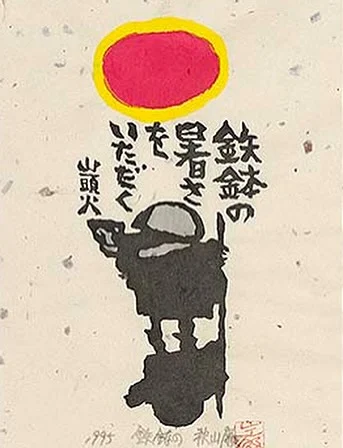 鉄鉢の
暑さ
を
いただく
山頭火
1995 鉄鉢の 秋山巌